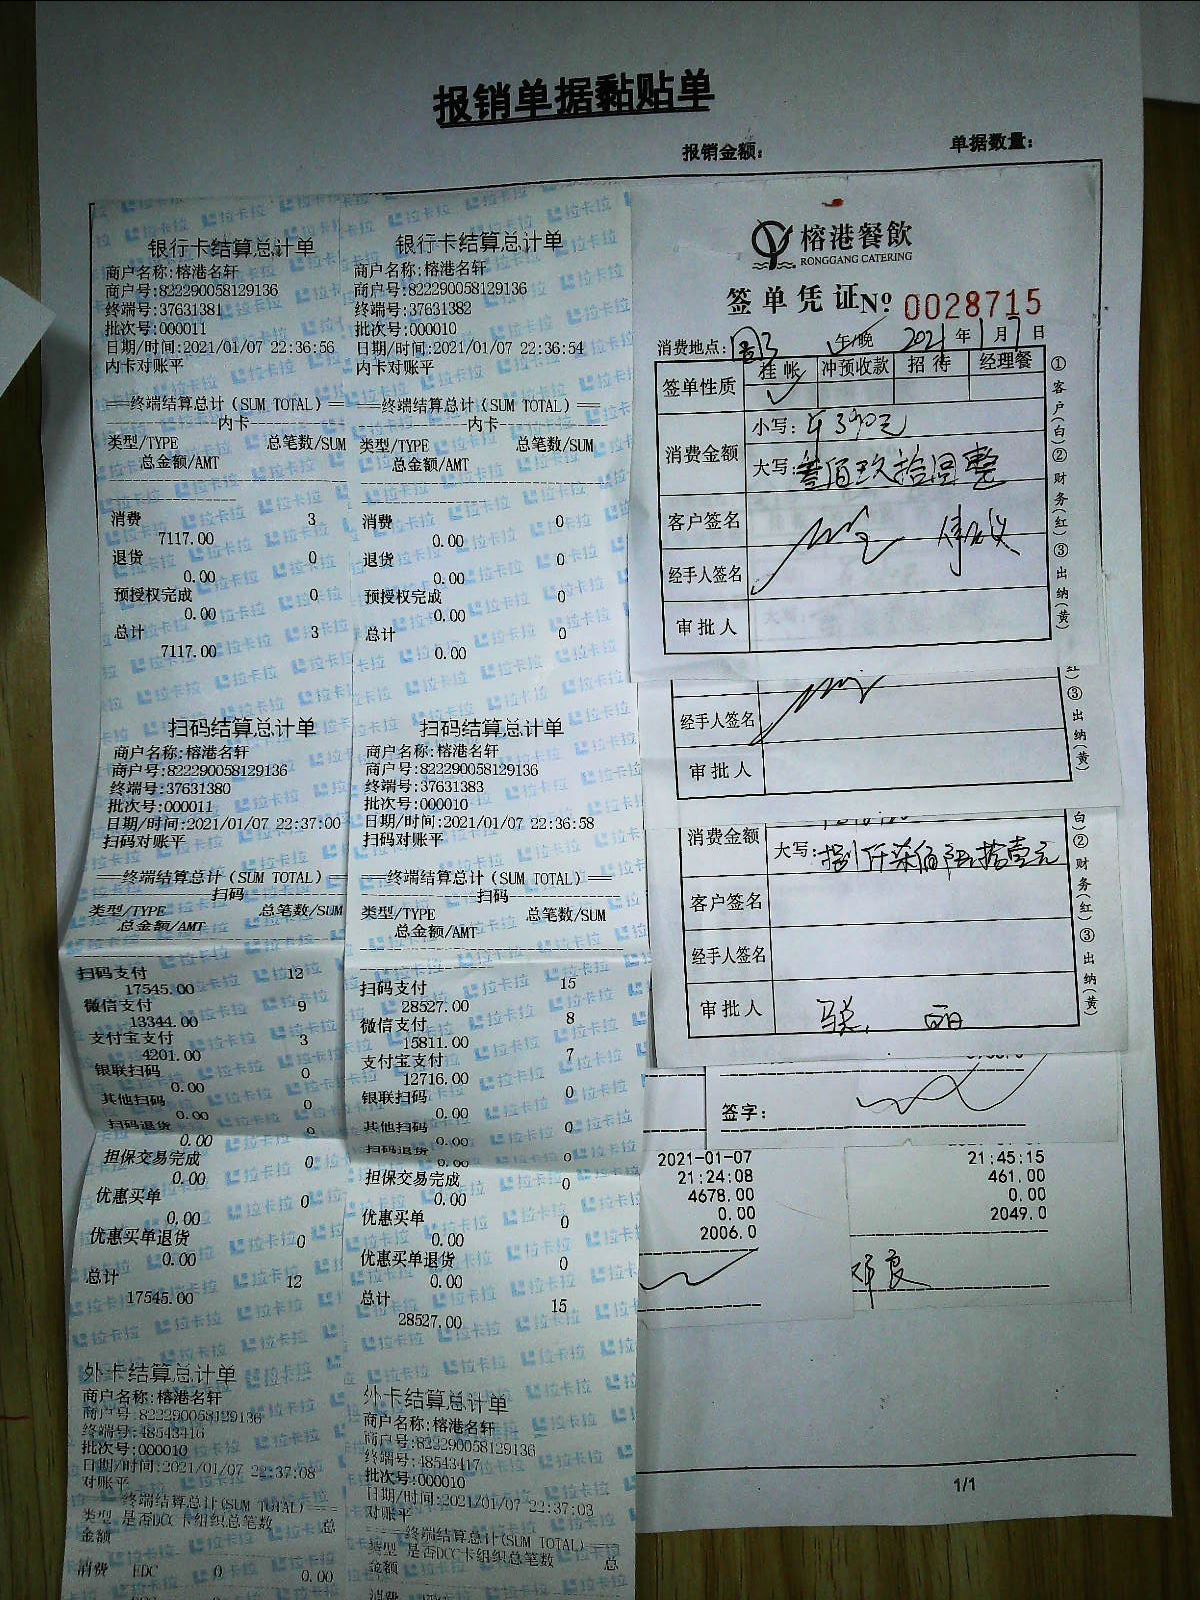 报销单据黏贴单
报销金额：
单据数量：
银行卡结算总计单
商户名称:榕港名轩
商户号:822290058129136
终端号:37631381
批次号:000011
日期/时间:2021/01/07 22:36:56
内卡对账平
==终端结算总计(SUM TOTAL)==
内卡
类型/TYPE 总笔数/SUM
总金额/AMT
消费 3
7117.00
退货 0
0.00
预授权完成 0
0.00
总计 3
7117.00
扫码结算总计单
商户名称:榕港名轩
商户号:822290058129136
终端号:37631380
批次号:000011
日期/时间:2021/01/07 22:37:00
扫码对账平
==终端结算总计(SUM TOTAL)==
扫码
类型/TYPE 总笔数/SUM
总金额/AMT
扫码支付 12
17545.00
微信支付 9
13344.00
支付宝支付 3
4201.00
银联扫码 0
0.00
其他扫码 0
0.00
扫码退货 0
0.00
担保交易完成 0
0.00
优惠买单 0
0.00
优惠买单退货 0
0.00
总计 12
17545.00
外卡结算总计单
商户名称:榕港名轩
商户号:822290058129136
终端号:48543416
批次号:000010
日期/时间:2021/01/07 22:37:08
对账平
终端结算总计(SUM TOTAL)===
类型 是否DCC 卡组织总笔数 总
金额
消费 EDC 0 0.00
银行卡结算总计单
商户名称:榕港名轩
商户号:822290058129136
终端号:37631382
批次号:000010
日期/时间:2021/01/07 22:36:54
内卡对账平
==终端结算总计(SUM TOTAL)===
内卡
类型/TYPE 总笔数/SUM
总金额/AMT
消费 0
0.00
退货 0
0.00
预授权完成 0
0.00
总计 0
0.00
扫码结算总计单
商户名称:榕港名轩
商户号:822290058129136
终端号:37631383
批次号:000010
日期/时间:2021/01/07 22:36:58
扫码对账平
==终端结算总计(SUM TOTAL)===
扫码
类型/TYPE 总笔数/SUM
总金额/AMT
扫码支付 15
28527.00
微信支付 8
15811.00
支付宝支付 7
12716.00
银联扫码 0
0.00
其他扫码 0
0.00
扫码退货 0
0.00
担保交易完成 0
0.00
优惠买单 0
0.00
优惠买单退货 0
0.00
总计 15
28527.00
外卡结算总计单
商户名称:榕港名轩
商户号:822290058129136
终端号:48543417
批次号:000010
日期/时间:2021/01/07 22:37:03
对账平
终端结算总计(SUM TOTAL)===
类型 是否DCC 卡组织总笔数 总
金额
消费
榕港餐飲
RONGGANG CATERING
签单凭证 No 0028715
消费地点: 午/晚 2021 年 1 月 7 日
签单性质 挂帐 冲预收款 招待 经理餐
消费金额
小写: ¥390元
大写: 叁佰玖拾圆整
客户签名
经手人签名
审批人
①客户(白)②财务(红)③出纳(黄)
经手人签名
审批人
③出纳(黄)
消费金额
大写: 捌仟柒佰 拾壹元
客户签名
经手人签名
审批人
白)②财务(红)③出纳(黄)
签字:
2021-01-07
21:24:08
4678.00
0.00
2006.0
21:45:15
461.00
0.00
2049.0
1/1